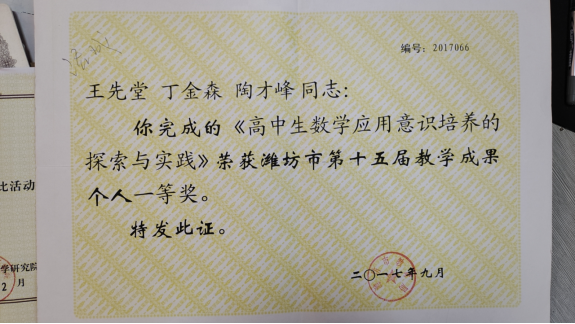 编号：2017066
王先堂 丁金森 陶才峰 同志：
你完成的《高中生数学应用意识培养的
探索与实践》荣获潍坊市第十五届教学成果
个人一等奖。
特发此证。
二〇一七年九月
比活动
学研究院
2月